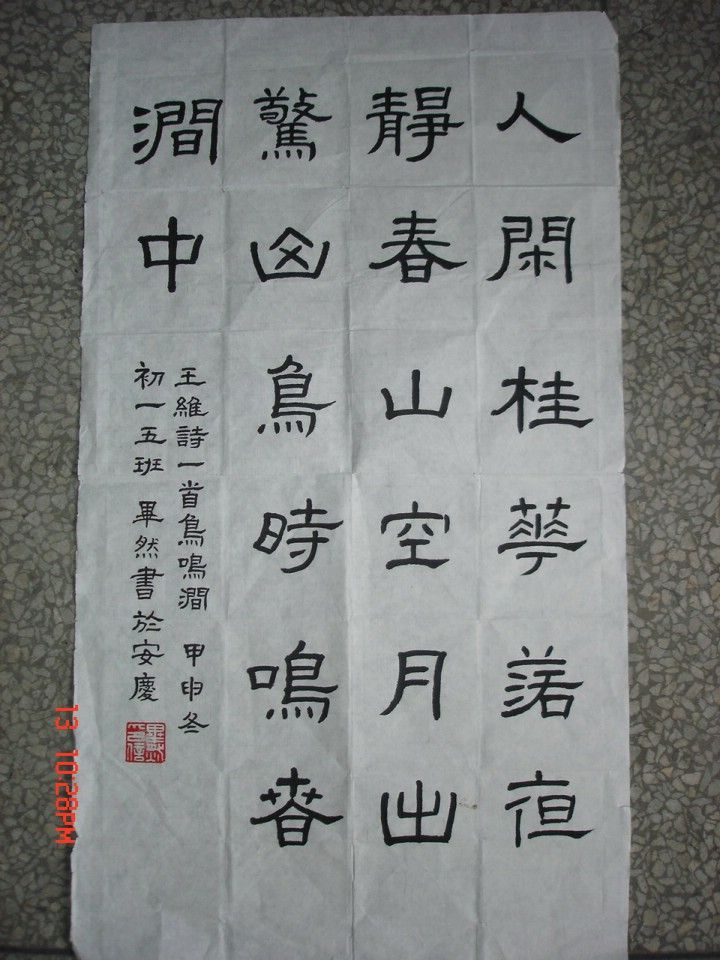 人閑桂華落夜
靜春山空月出
驚山鳥時鳴春
澗中
王維詩一首鳥鳴澗 甲申冬
初一五班 畢然書於安慶
13 10:28PM